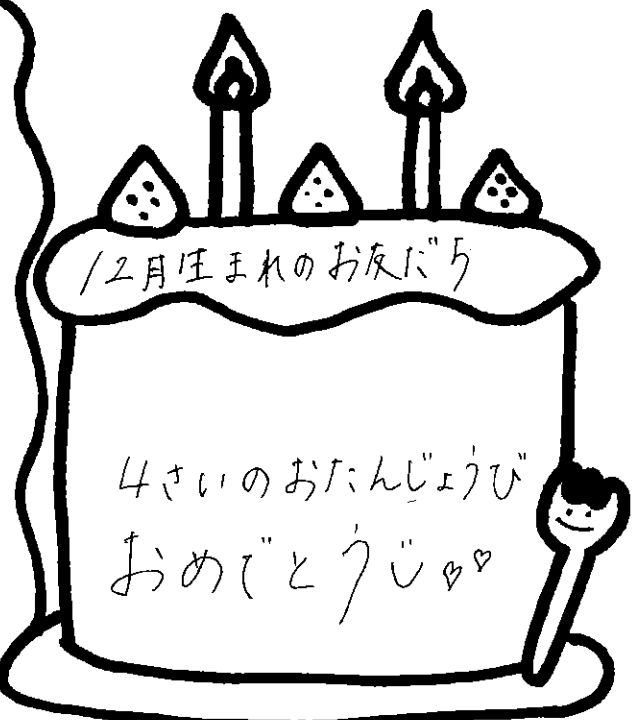 12月生まれのお友だち
4さいのおたんじょうび
おめでとうじ♡♡